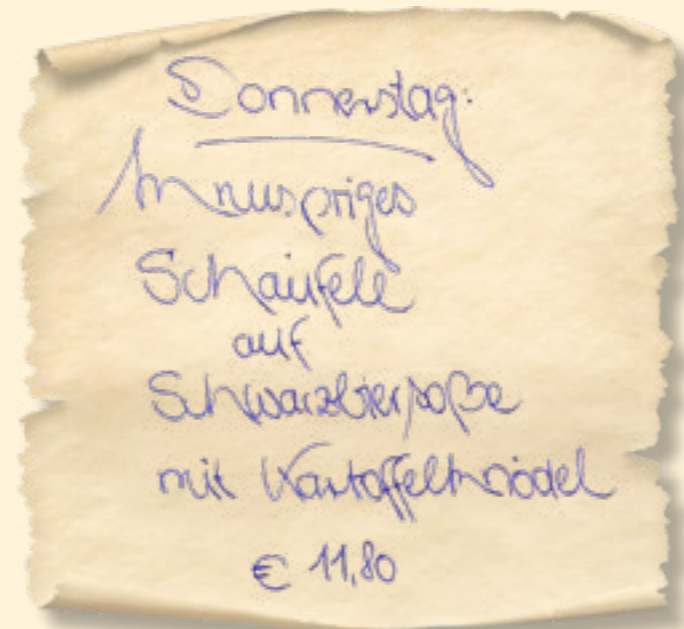 Donnerstag:
Knuspriges
Schäufele
auf
Schwarzbiersoße
mit Kartoffelknödel
€ 11,80